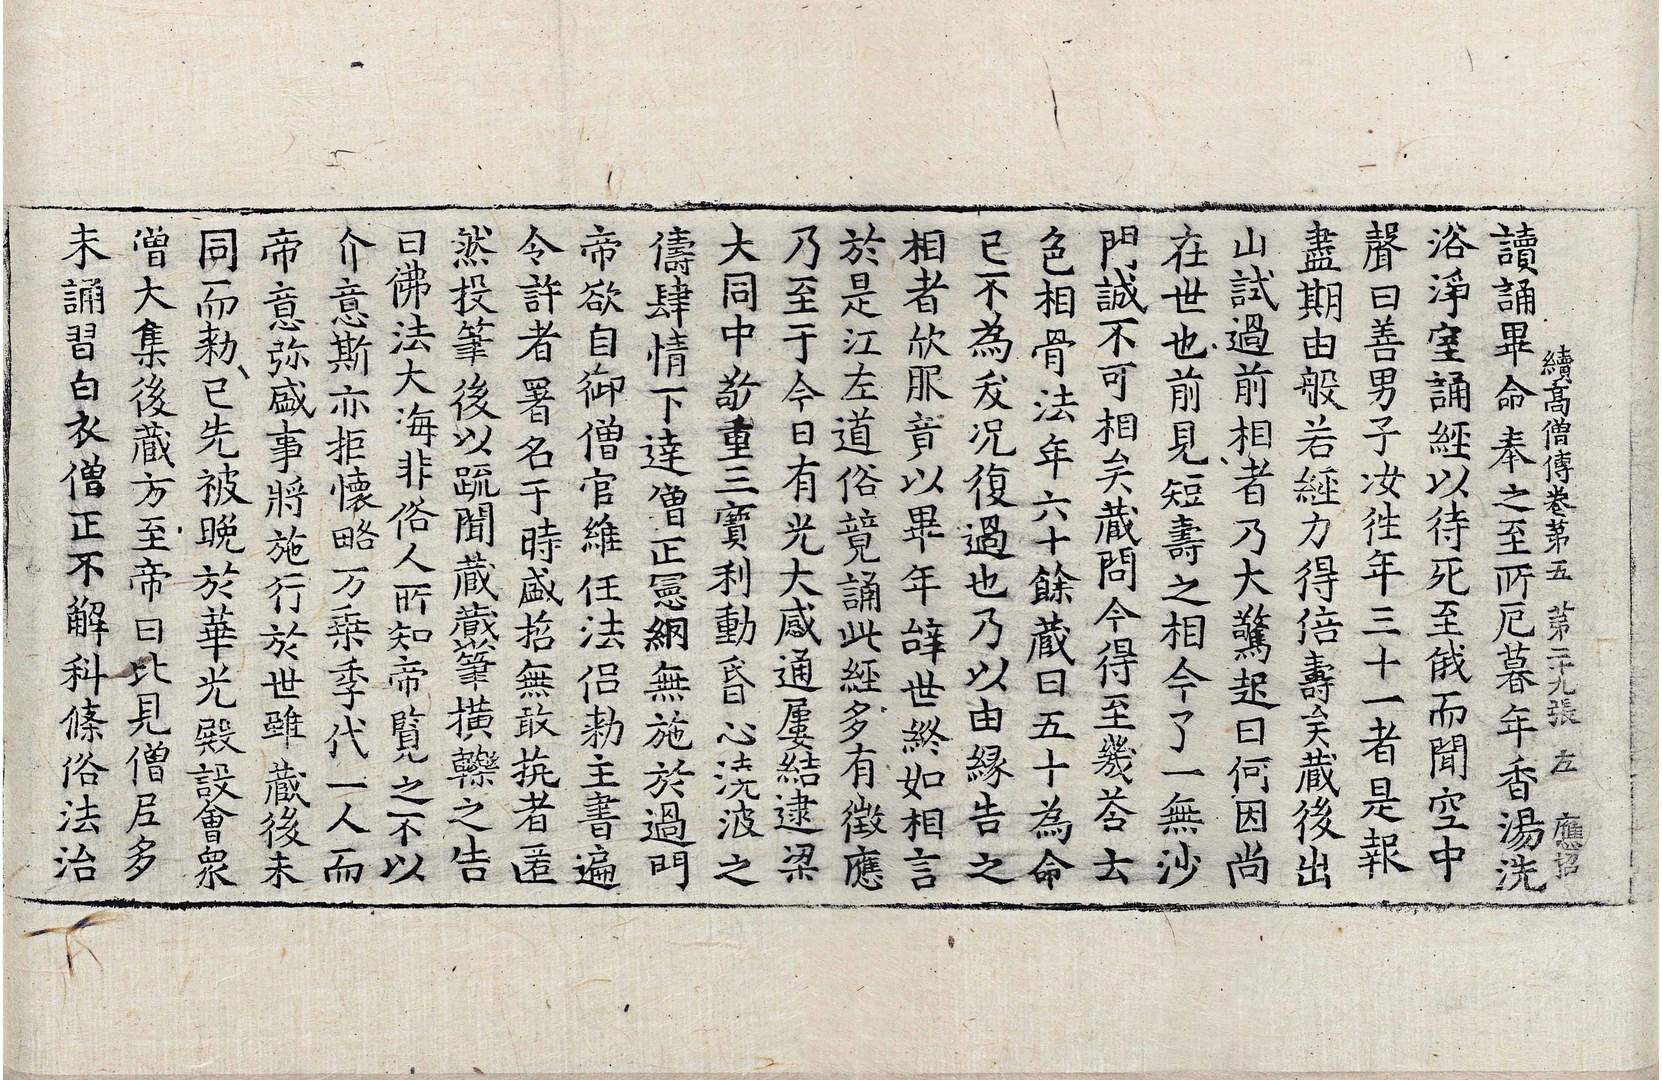 續高僧傳卷第五　第二十九張　左　應招
讀誦畢命奉之至所厄暮年香湯洗
浴淨室誦經以待死至俄而聞空中
聲曰善男子汝往年三十一者是報
盡期由般若經力得倍壽矣藏後出
山試過前相者乃大驚起曰何因尚
在世也前見短壽之相今了一無沙
門誠不可相矣藏問今得至幾荅云
色相骨法年六十餘藏曰五十為命
已不為夭况復過也乃以由緣告之
相者欣服竟以畢年辭世終如相言
於是江左道俗競誦此經多有徵應
乃至于今日有光大感通屢結逮梁
大同中敬重三寶利動昏心澆波之
儔肆情下達僧正憲網無施於過門
帝欲自御僧官維任法侶勑主書遍
令許者署名于時盛哲無敢抗者匿
然投筆後以疏聞藏藏筆橫轢之告
曰佛法大海非俗人所知帝覽之不以
介意斯亦拒懷略万乗季代一人而
帝意弥盛事將施行於世雖藏後未
同而勑已先被晚於華光殿設會衆
僧大集後藏方至帝曰比見僧尼多
未誦習白衣僧正不解科條俗法治